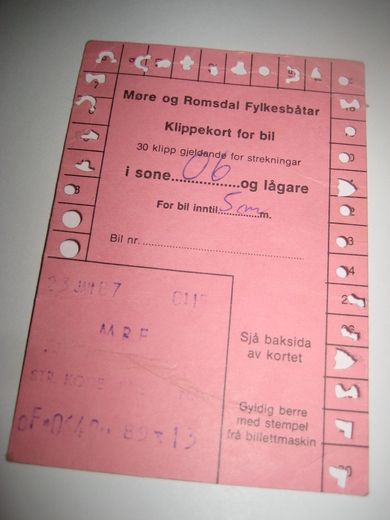 Møre og Romsdal Fylkesbåtar
Klippekort for bil
30 klipp gjeldande for strekningar
i sone 06 og lågare
For bil inntil 5 m m.
Bil nr.
23 JAN 07
MRF
Sjå baksida
av kortet
STR KODE
Gyldig berre
med stempel
frå billettmaskin